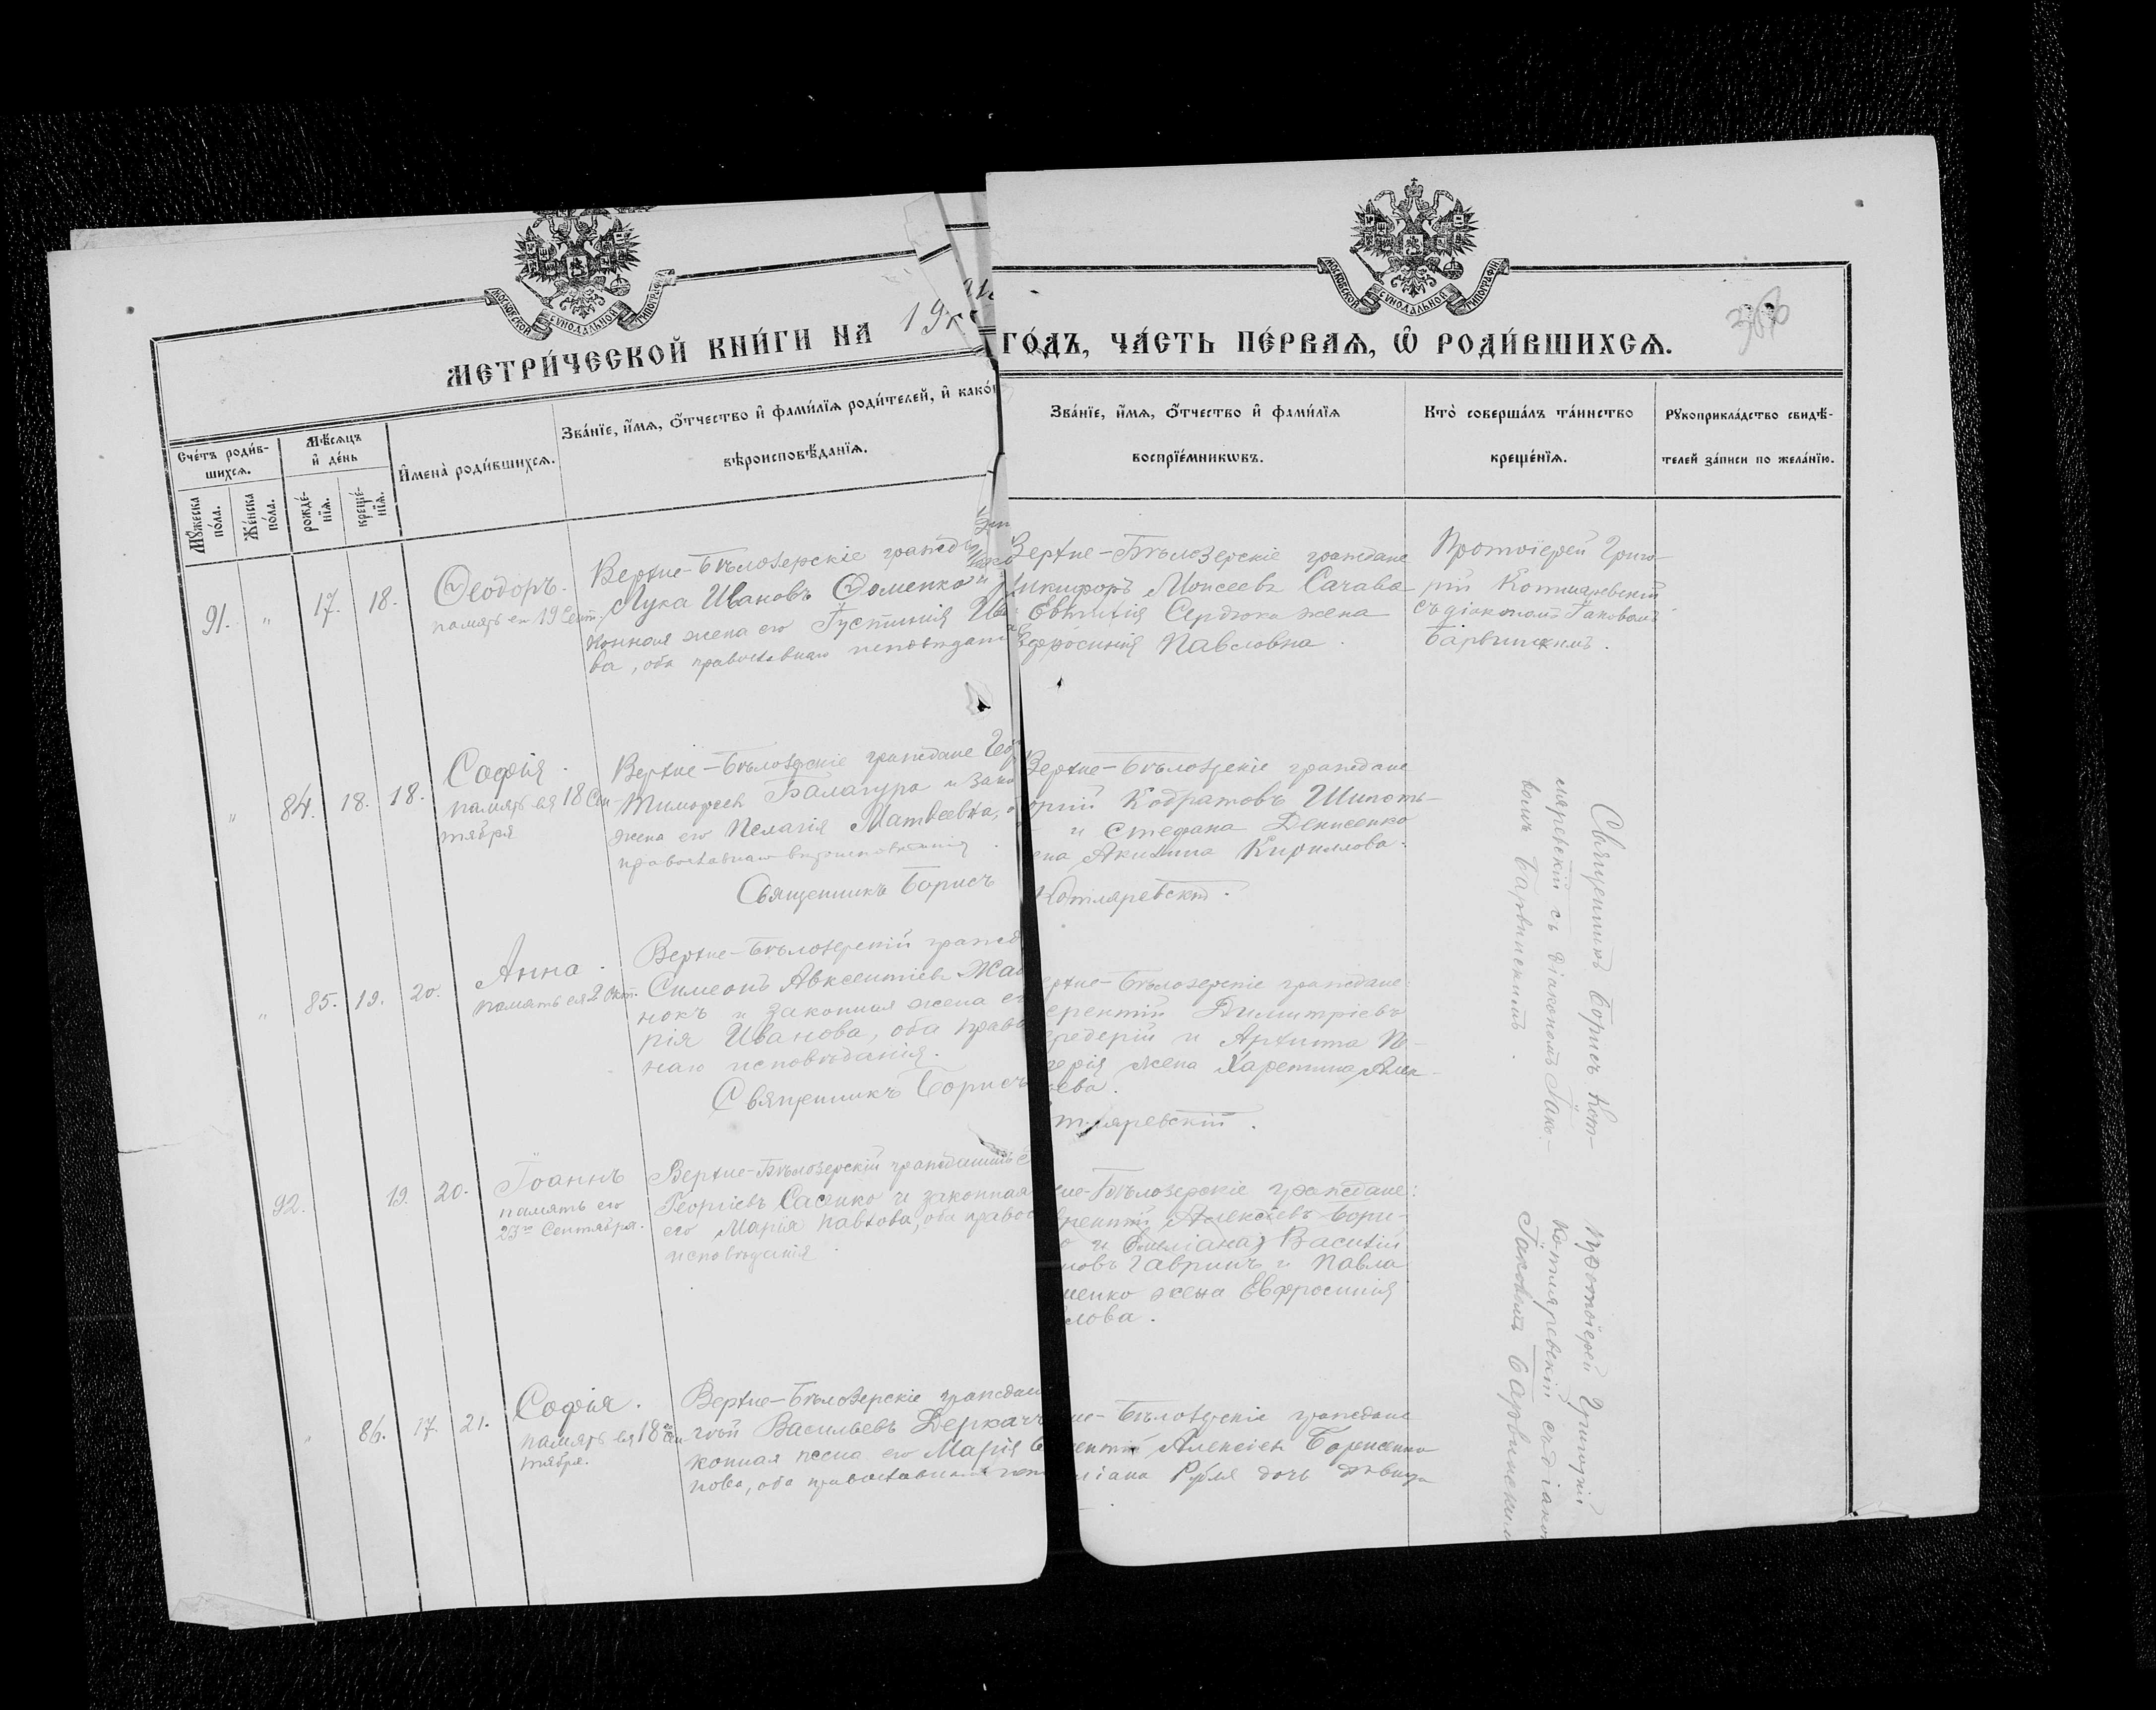 МОСКОВСКОЙ СѴНОДАЛЬНОЙ ТИПОГРАФІИ
МОСКОВСКОЙ СѴНОДАЛЬНОЙ ТИПОГРАФІИ
МЕТРИ́ЧЕСКОЙ КНИ́ГИ НА 19
ГО́ДЪ, ЧА́СТЬ ПЕ́РВАѦ, Ѿ РОДИ́ВШИХСѦ.
Сче́тъ роди́в-
шихсѧ.
Мꙋ́жеска
по́ла.
Же́нска
по́ла.
Мѣ́сѧцъ
и҆ де́нь
рожде́-
нїѧ.
креще́-
нїѧ.
И҆мена̀ роди́вшихсѧ.
Зва́нїе, и҆́мѧ, ѻ҆́тчество и҆ фами́лїѧ роди́телей, и҆ како́
вѣроисповѣ́данїѧ.
Зва́нїе, и҆́мѧ, ѻ҆́тчество и҆ фами́лїѧ
воспрїе́мникѡвъ.
Кто̀ соверша́лъ та́инство
креще́нїѧ.
Рꙋкоприкла́дство свидѣ́-
телей за́писи по жела́нїю.
91. " 17. 18.
Ѳеодоръ.
память его 19 Сент.
Верхне-Бѣлозерскіе гражд
Лука Ивановъ Ѳоменко и
конная жена его Густинія Ив
ва, оба православнаго исповѣдан
Верхне-Бѣлозерскіе граждане
Никифоръ Моисеевъ Сачава
Евѳимія Сердюка жена
Ефросинія Павловна.
Протоіерей Григо-
рій Котляревскій
съ діакономъ Іаковомъ
Барвинскимъ.
" 84. 18. 18.
Софія.
память ея 18 Сен-
тября
Верхне-Бѣлозерскіе граждане Гео
Тимоѳеевъ Балагура и зако
жена его Пелагія Матвѣевна, о
православнаго вѣроисповѣданія.
Священникъ Борисъ
Верхне-Бѣлозерскіе граждане
оргій Кодратовъ
и Стефана Денисенко
ена Акилина Кириллова.
Котляревскій.
Священникъ Борисъ Кот-
ляревскій съ діакономъ Іако-
вомъ Барвинскимъ.
" 85. 19. 20.
Анна.
память ея 2 Окт.
Верхне-Бѣлозерскій гражд
Симеонъ Авксентіевъ Жав
нокъ и законная жена е
рія Иванова, оба право
наго исповѣданія.
Священникъ Борисъ
ерхне-Бѣлозерскіе граждане:
ерентій Димитріевъ
едерій и Архипа
ерія жена Харетина Алек-
еева.
тляревскій.
92. 19. 20.
Іоаннъ
память его
23го Сентября.
Верхне-Бѣлозерскій гражданинъ
Георгіевъ Саенко и законная
его Марія Павлова, оба правос
исповѣданія.
не-Бѣлозерскіе граждане:
врентій Алексіевъ Бори-
о и Емеліана) Василій
новъ Гавришъ и Павла
менко жена Евфросинія
лова.
Протоіерей Григорій
Котляревскій съ діакон
Іаковомъ Барвинскимъ
" 86. 17. 21.
Софія.
память ея 18го Сен
тября.
Верхне-Бѣлозерскіе граждан
гій Васильевъ Деркачъ
конная жена его Марія
нова, оба православнаго исп
не-Бѣлозерскіе граждане
рентій Алексіевъ Борисенко
ліана Рубля дочь дѣвица